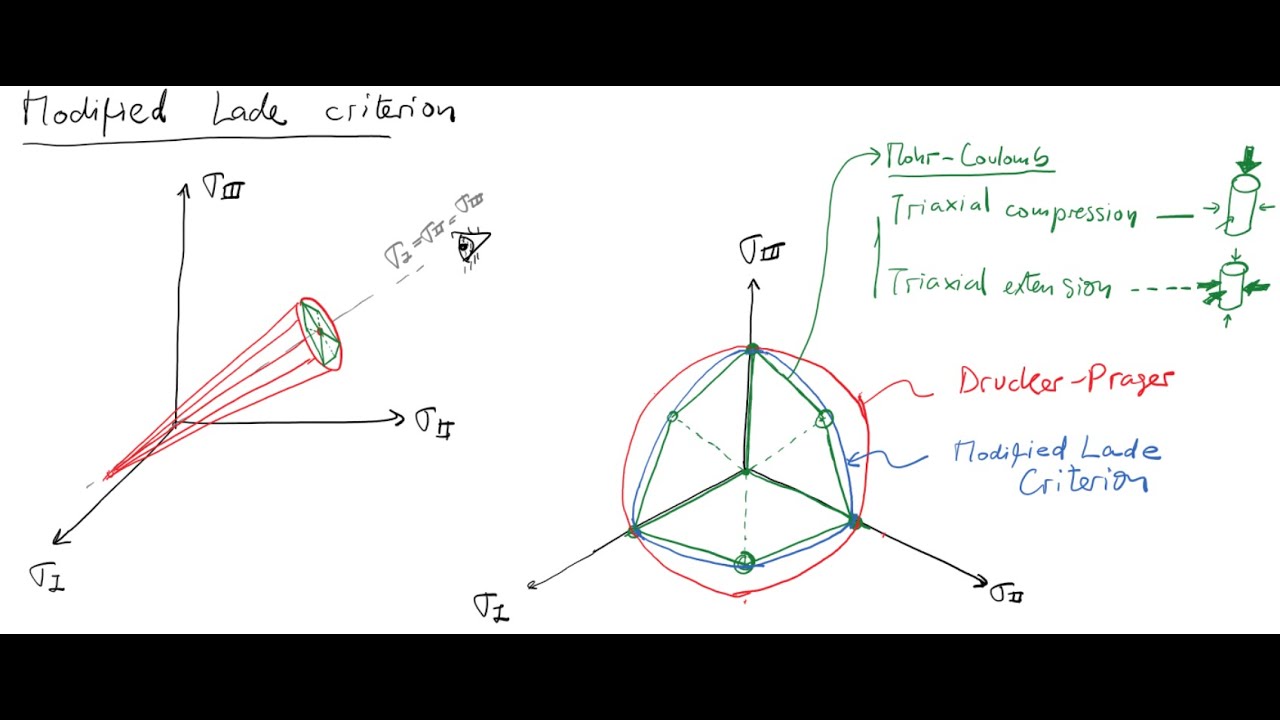 Modified Lade criterion
σIII
σI = σII = σIII
σII
σI
Mohr-Coulomb
Triaxial compression
Triaxial extension
σIII
Drucker-Prager
Modified Lade
Criterion
σII
σI